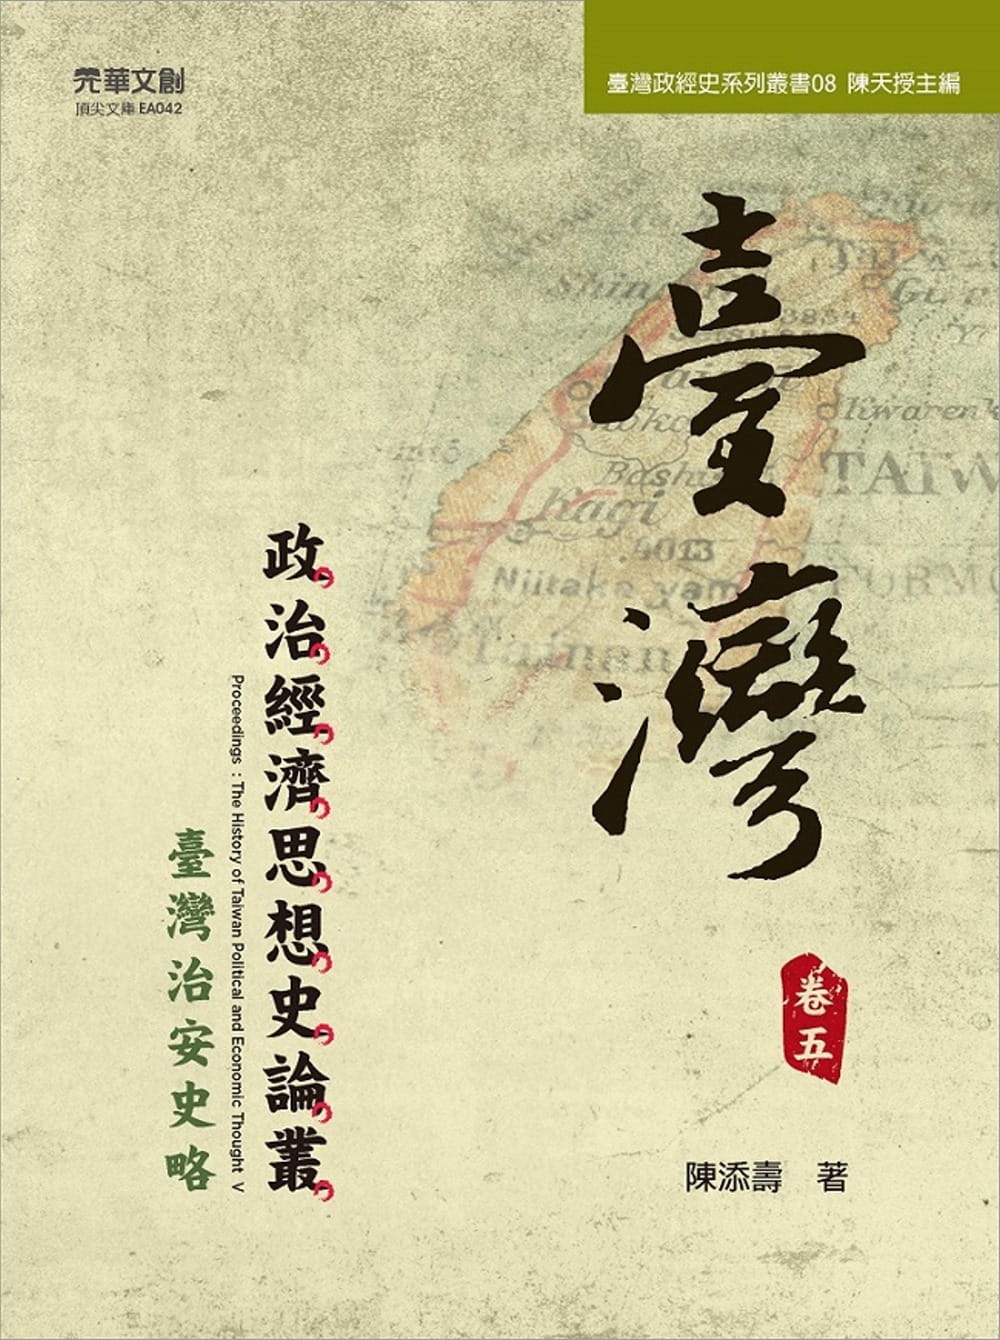 元華文創
頂尖文庫 EA042
臺灣政經史系列叢書08 陳天授主編
臺灣
卷五
陳添壽 著
政治經濟思想史論叢
Proceedings : The History of Taiwan Political and Economic Thought V
臺灣治安史略
Shin
3854
Kwaren
TAIW
Kagi
4013
Niitaka yam
Tainan